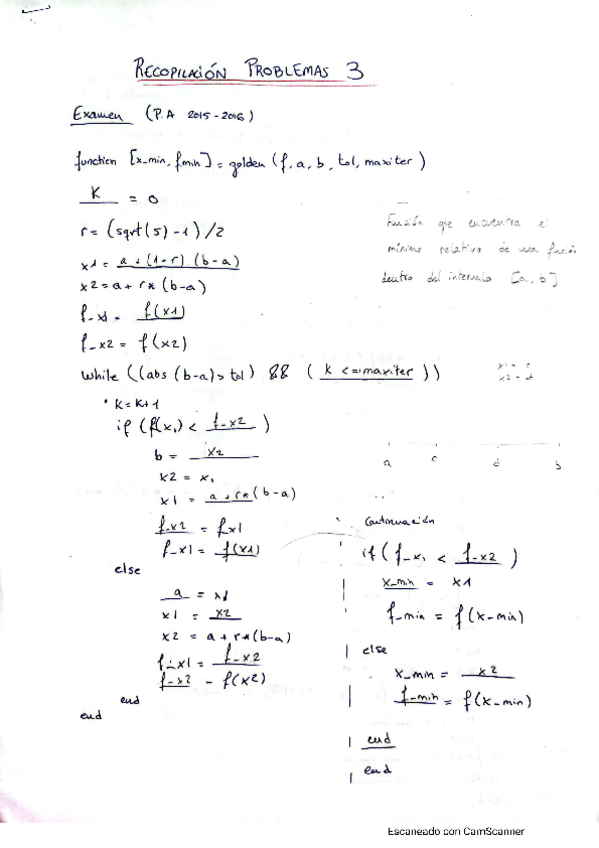 RECOPILACIÓN PROBLEMAS 3
Examen (P.A 2015-2016)
function [x_min, fmin] = golden (f, a, b, tol, maxiter)
K = 0
r = (sqrt(5) - 1)/2
x1 = a + (1-r) (b-a)
x2 = a + r* (b-a)
f_x1 = f(x1)
f_x2 = f(x2)
while ((abs (b-a) > tol) && (k <= maxiter))
K = K+1
if (f(x1) < f_x2)
b = x2
x2 = x1
x1 = a + r* (b-a)
f_x2 = f_x1
f_x1 = f(x1)
else
a = x1
x1 = x2
x2 = a + r*(b-a)
f_x1 = f_x2
f_x2 = f(x2)
end
end
Función que encuentra el
mínimo relativo de una función
dentro del intervalo [a, b]
a c d b
Continuación
if (f_x1 < f_x2)
x_min = x1
f_min = f(x_min)
else
x_min = x2
f_min = f(x_min)
end
end
Escaneado con CamScanner